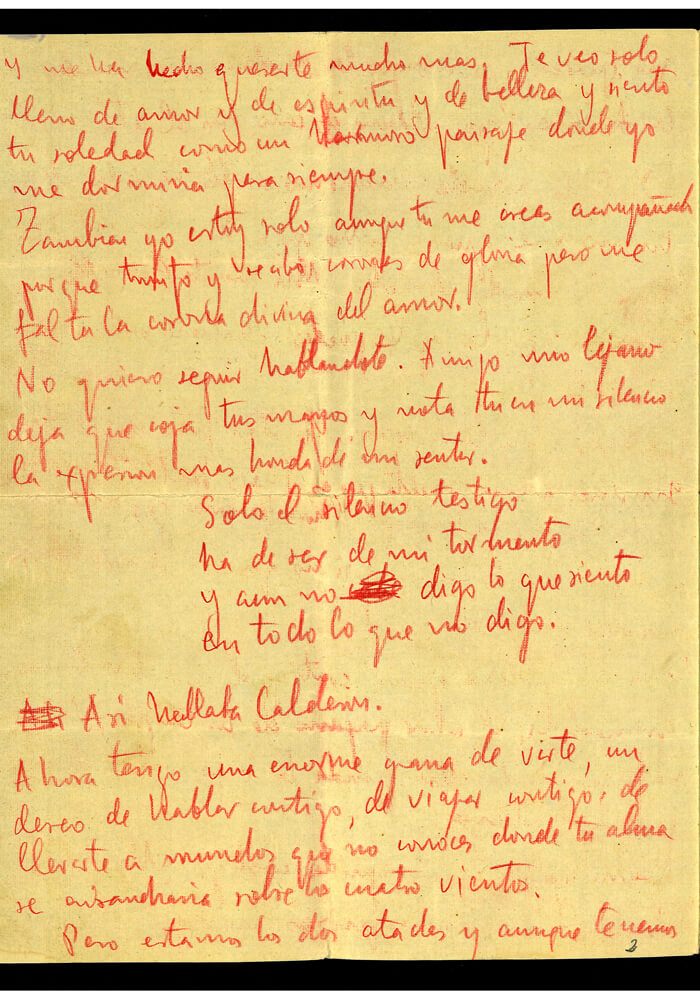 y me ha hecho quererte mucho mas. Te veo solo
lleno de amor y de espiritu y de belleza y siento
tu soledad como un hermoso paisaje donde yo
me dormiria para siempre.
Tambien yo estoy solo aunque tu me creas acompañado
porque triunfo y recibo coronas de gloria pero me
falta la corona divina del amor.
No quiero seguir hablandote. Amigo mio lejano
deja que coja tus manos y nota tu en mi silencio
la expresion mas honda de mi sentir.
Solo el silencio testigo
ha de ser de mi tormento
y aun no digo lo que siento
en todo lo que no digo.
Asi hablaba Calderon.
Ahora tengo una enorme gana de verte, un
deseo de hablar contigo, de viajar contigo, de
llevarte a mundos que no conoces donde tu alma
se ensancharia sobre los cuatro vientos.
Pero estamos los dos atados y aunque tenemos
2